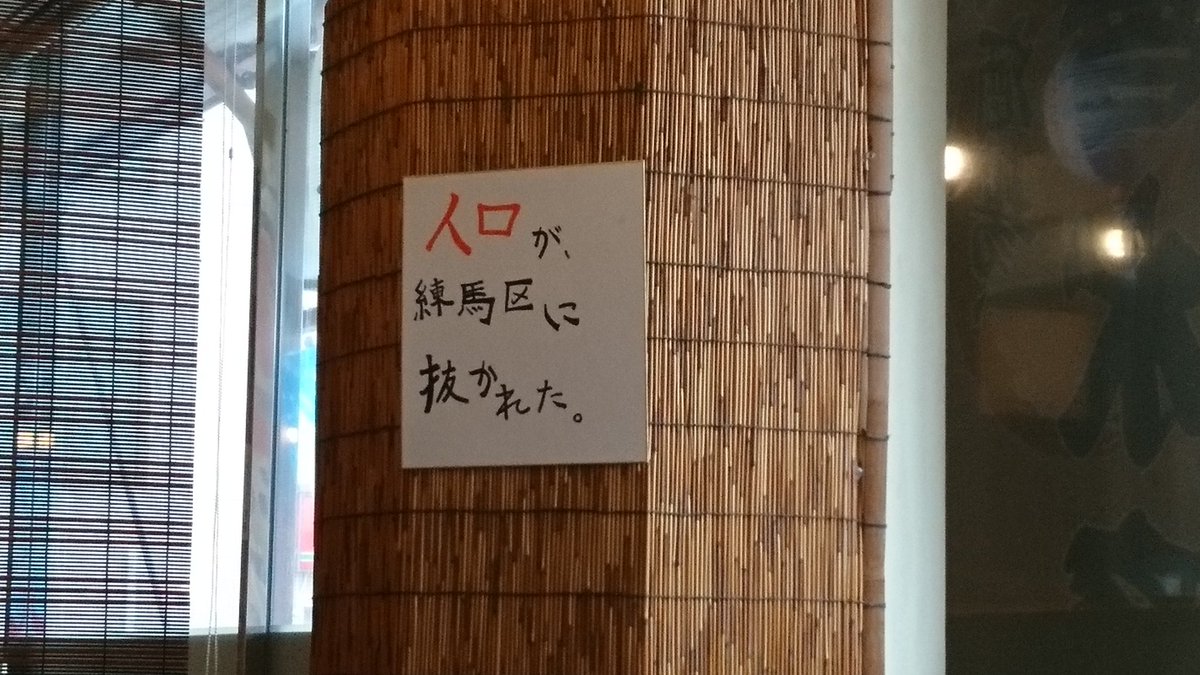 人口が、
練馬区に
抜かれた。